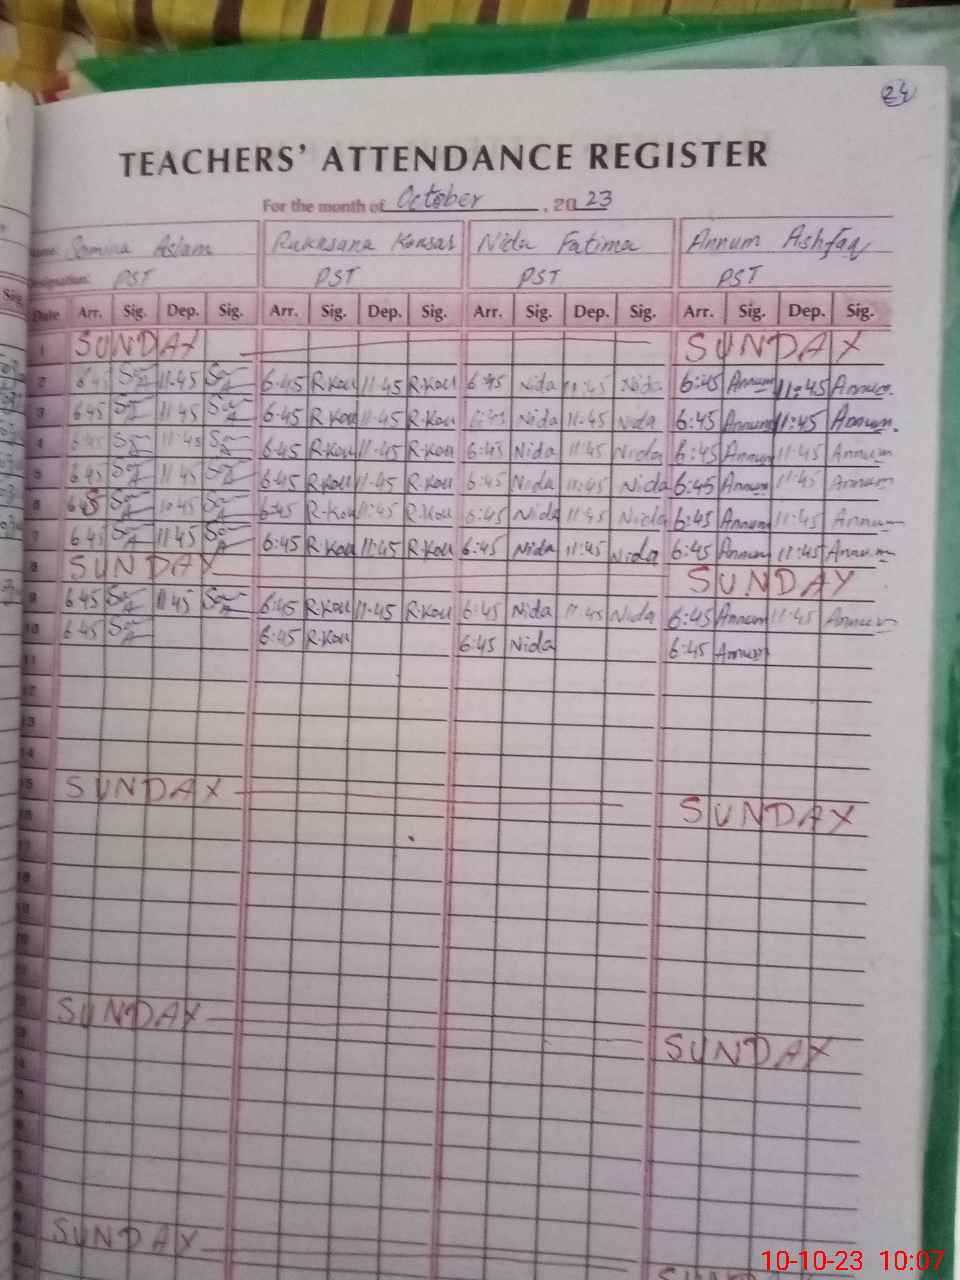 24
TEACHERS' ATTENDANCE REGISTER
For the month of October, 2023
Name: Samina Aslam Rukhsana Kousar Nida Fatima Annum Ashfaq
Designation: PST PST PST PST
Date Arr. Sig. Dep. Sig. Arr. Sig. Dep. Sig. Arr. Sig. Dep. Sig. Arr. Sig. Dep. Sig.
1 SUNDAY SUNDAY
2 6:45 11-45 6-45 R.Kou 11-45 R.Kou 6:45 Nida 11:45 Nida 6:45 Annum 11:45 Annum
3 6:45 11:45 6-45 R.Kou 11-45 R.Kou 6:45 Nida 11:45 Nida 6:45 Annum 11:45 Annum
4 6:45 11:45 6:45 R.Kou 11-45 R.Kou 6:45 Nida 11:45 Nida 6:45 Annum 11:45 Annum
5 6:45 11:45 6:45 R.Kou 11-45 R.Kou 6:45 Nida 11:45 Nida 6:45 Annum 11:45 Annum
6 10:45 6:45 R-Kou 11:45 R.Kou 6:45 Nida 11:45 Nida 6:45 Annum 11:45 Annum
7 6:45 11:45 6:45 R.Kou 11:45 R.Kou 6:45 Nida 11:45 Nida 6:45 Annum 11:45 Annum
8 SUNDAY SUNDAY
9 6:45 11:45 6:45 R.Kou 11-45 R.Kou 6:45 Nida 11:45 Nida 6:45 Annum 11:45 Annum
10 6:45 6:45 R.Kou 6:45 Nida 6:45 Annum
11
12
13
14
15 SUNDAY SUNDAY
SUNDAY SUNDAY
SUNDAY SUNDAY
10-10-23 10:07